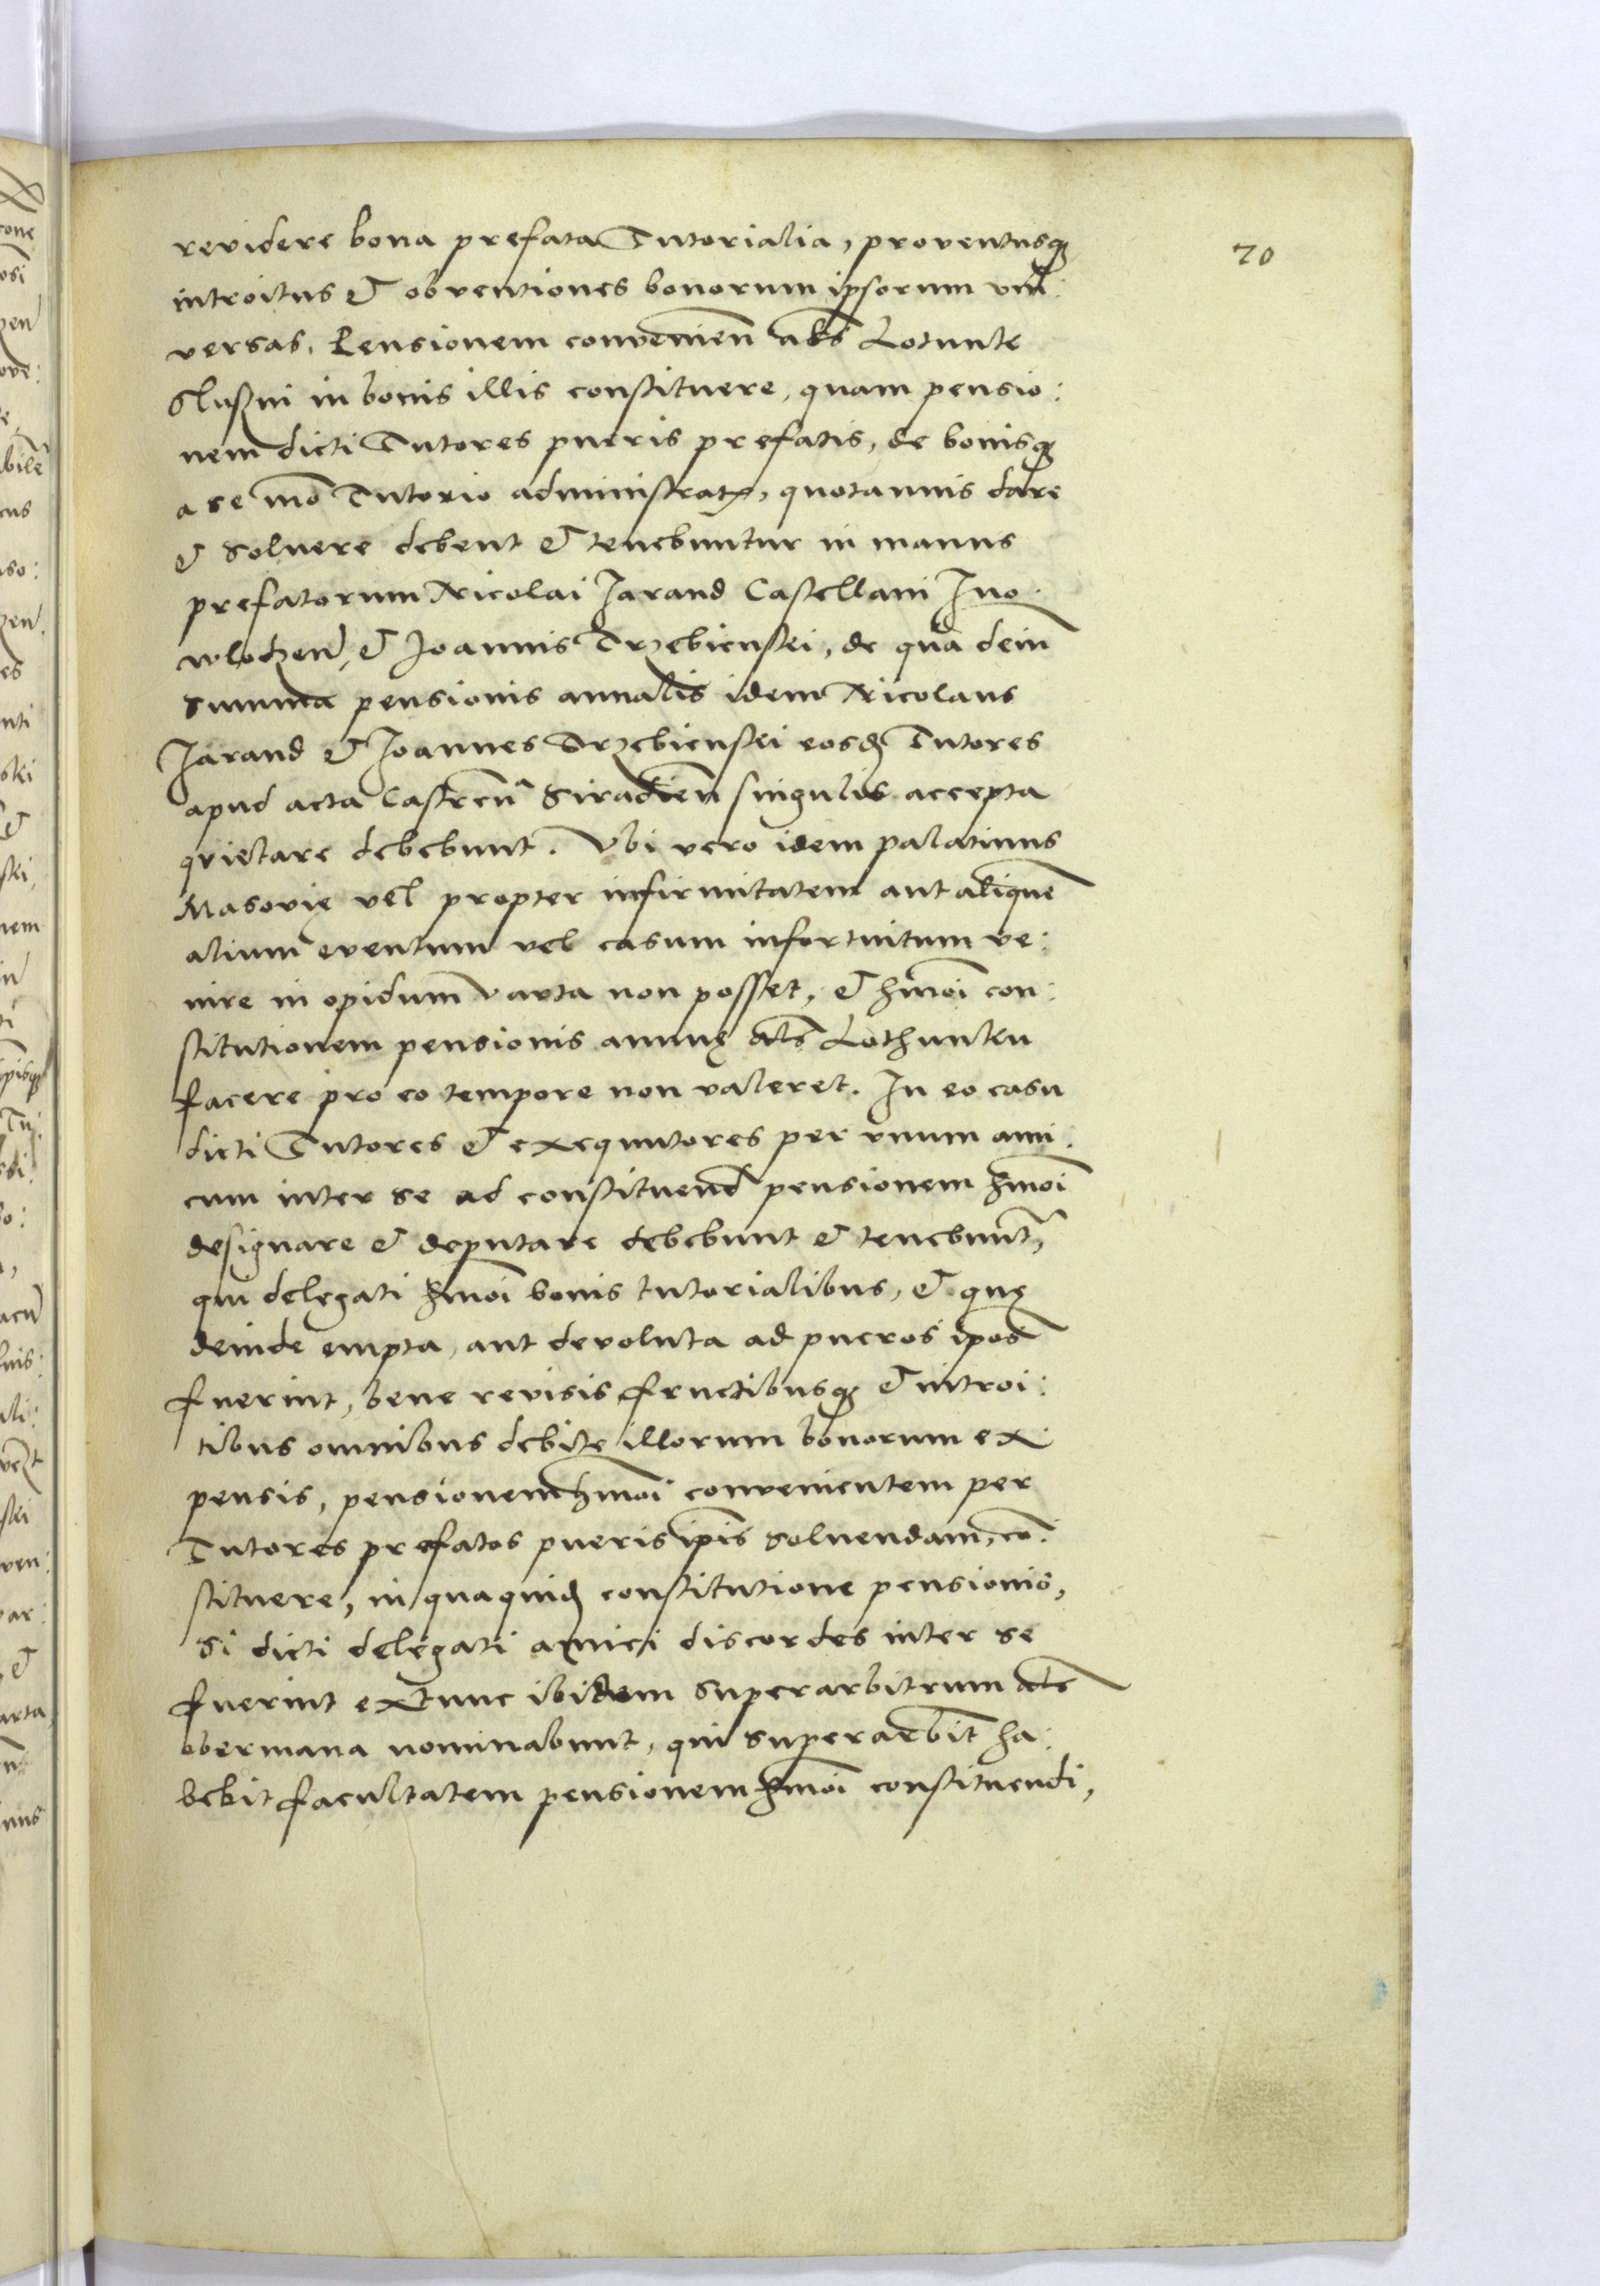 70
revidere bona prefata Tutorialia, proventusq₃
introitus & obventiones bonorum ipsorum uni:
versas. Pensionem convenien̄ al̄s Lotunte
Slussni in bonis illis constituere, quam pensio:
nem dicti Tutores pueris prefatis, de bonisq₃
a se mō Tutorio administrat, quotannis dare
& solvere debent & tenebuntur in manus
prefatorum Nicolai Jarand Castellani Ino:
wlodzen̄ & Joannis Drzebienskei, de qua dein̄
summa pensionis annalis idem Nicolaus
Jarand & Joannes Drzebienskei eosd̄ Tutores
apud acta Castren̄ Siradien̄ singulis accepta
quietare debebunt. Ubi vero idem palatinus
Masovię vel propter infirmitatem aut aliquem̄
alium eventum vel casum infortuitum ve:
nire in opidum Varta non posset, & hm̄oi con:
stitutionem pensionis annuę al̄s Lothunku
facere pro eo tempore non valeret. In eo casu
dicti Tutores & exequutores per unum ami:
cum inter se ad constituend̄ pensionem hm̄oi
designare & deputare debebunt & tenebunt̄,
qui delegati hm̄oi bonis tutorialibus, & quę
deinde empta, aut devoluta ad pueros ip̄os
fuerint, bene revisis fructibusq₃ & introi:
tibus omnibus debite illorum bonorum ex:
pensis, pensionem hm̄oi convenientem per
Tutores prefatos pueris ip̄is solvendam, cō:
stituere, in qua quid̄ constitutione pensionis,
si dicti delegati amici discordes inter se
fuerint extunc ibidem superarbitrum al̄s
obermana nominabunt, qui superarbit̄ ha:
bebit facultatem pensionem hm̄oi constituendi,